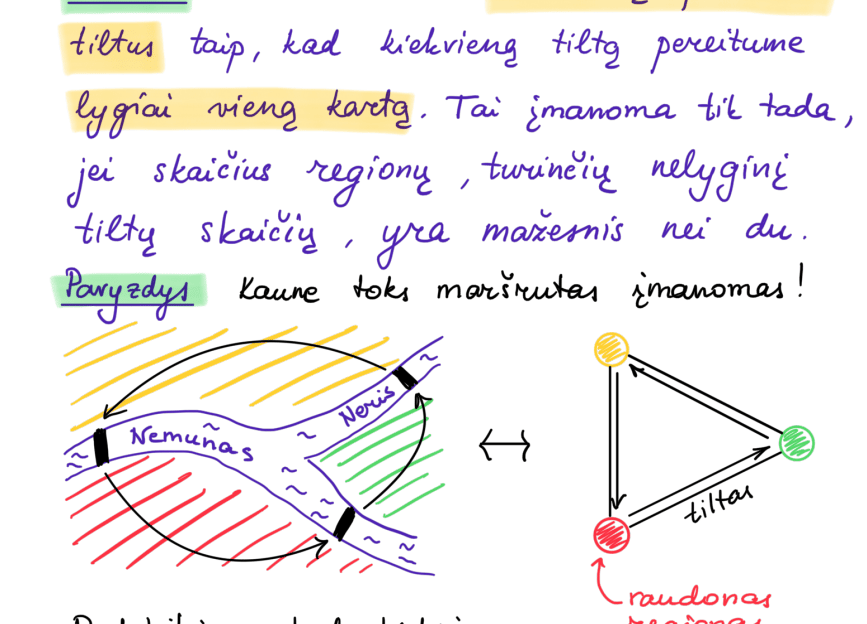 tiltus taip, kad kiekvieną tiltą pereitume
lygiai vieną kartą. Tai įmanoma tik tada,
jei skaičius regionų, turinčių nelyginį
tiltų skaičių, yra mažesnis nei du.
Pavyzdys Kaune toks maršrutas įmanomas!
Neris
Nemunas
tiltas
raudonas
regionas